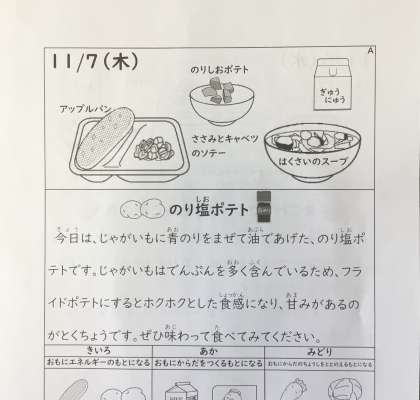 A
11/7(木)
のりしおポテト
ぎゅう
にゅう
アップルパン
ささみとキャベツ
のソテー
はくさいのスープ
のり塩ポテト
今日は、じゃがいもに青のりをまぜて油であげた、のり塩ポ
テトです。じゃがいもはでんぷんを多く含んでいるため、フラ
イドポテトにするとホクホクとした食感になり、甘みがあるの
がとくちょうです。ぜひ味わって食べてみてください。
きいろ
あか
みどり
おもにエネルギーのもとになる
おもにからだをつくるもとになる
おもにからだのちょうしをととのえるもとになる